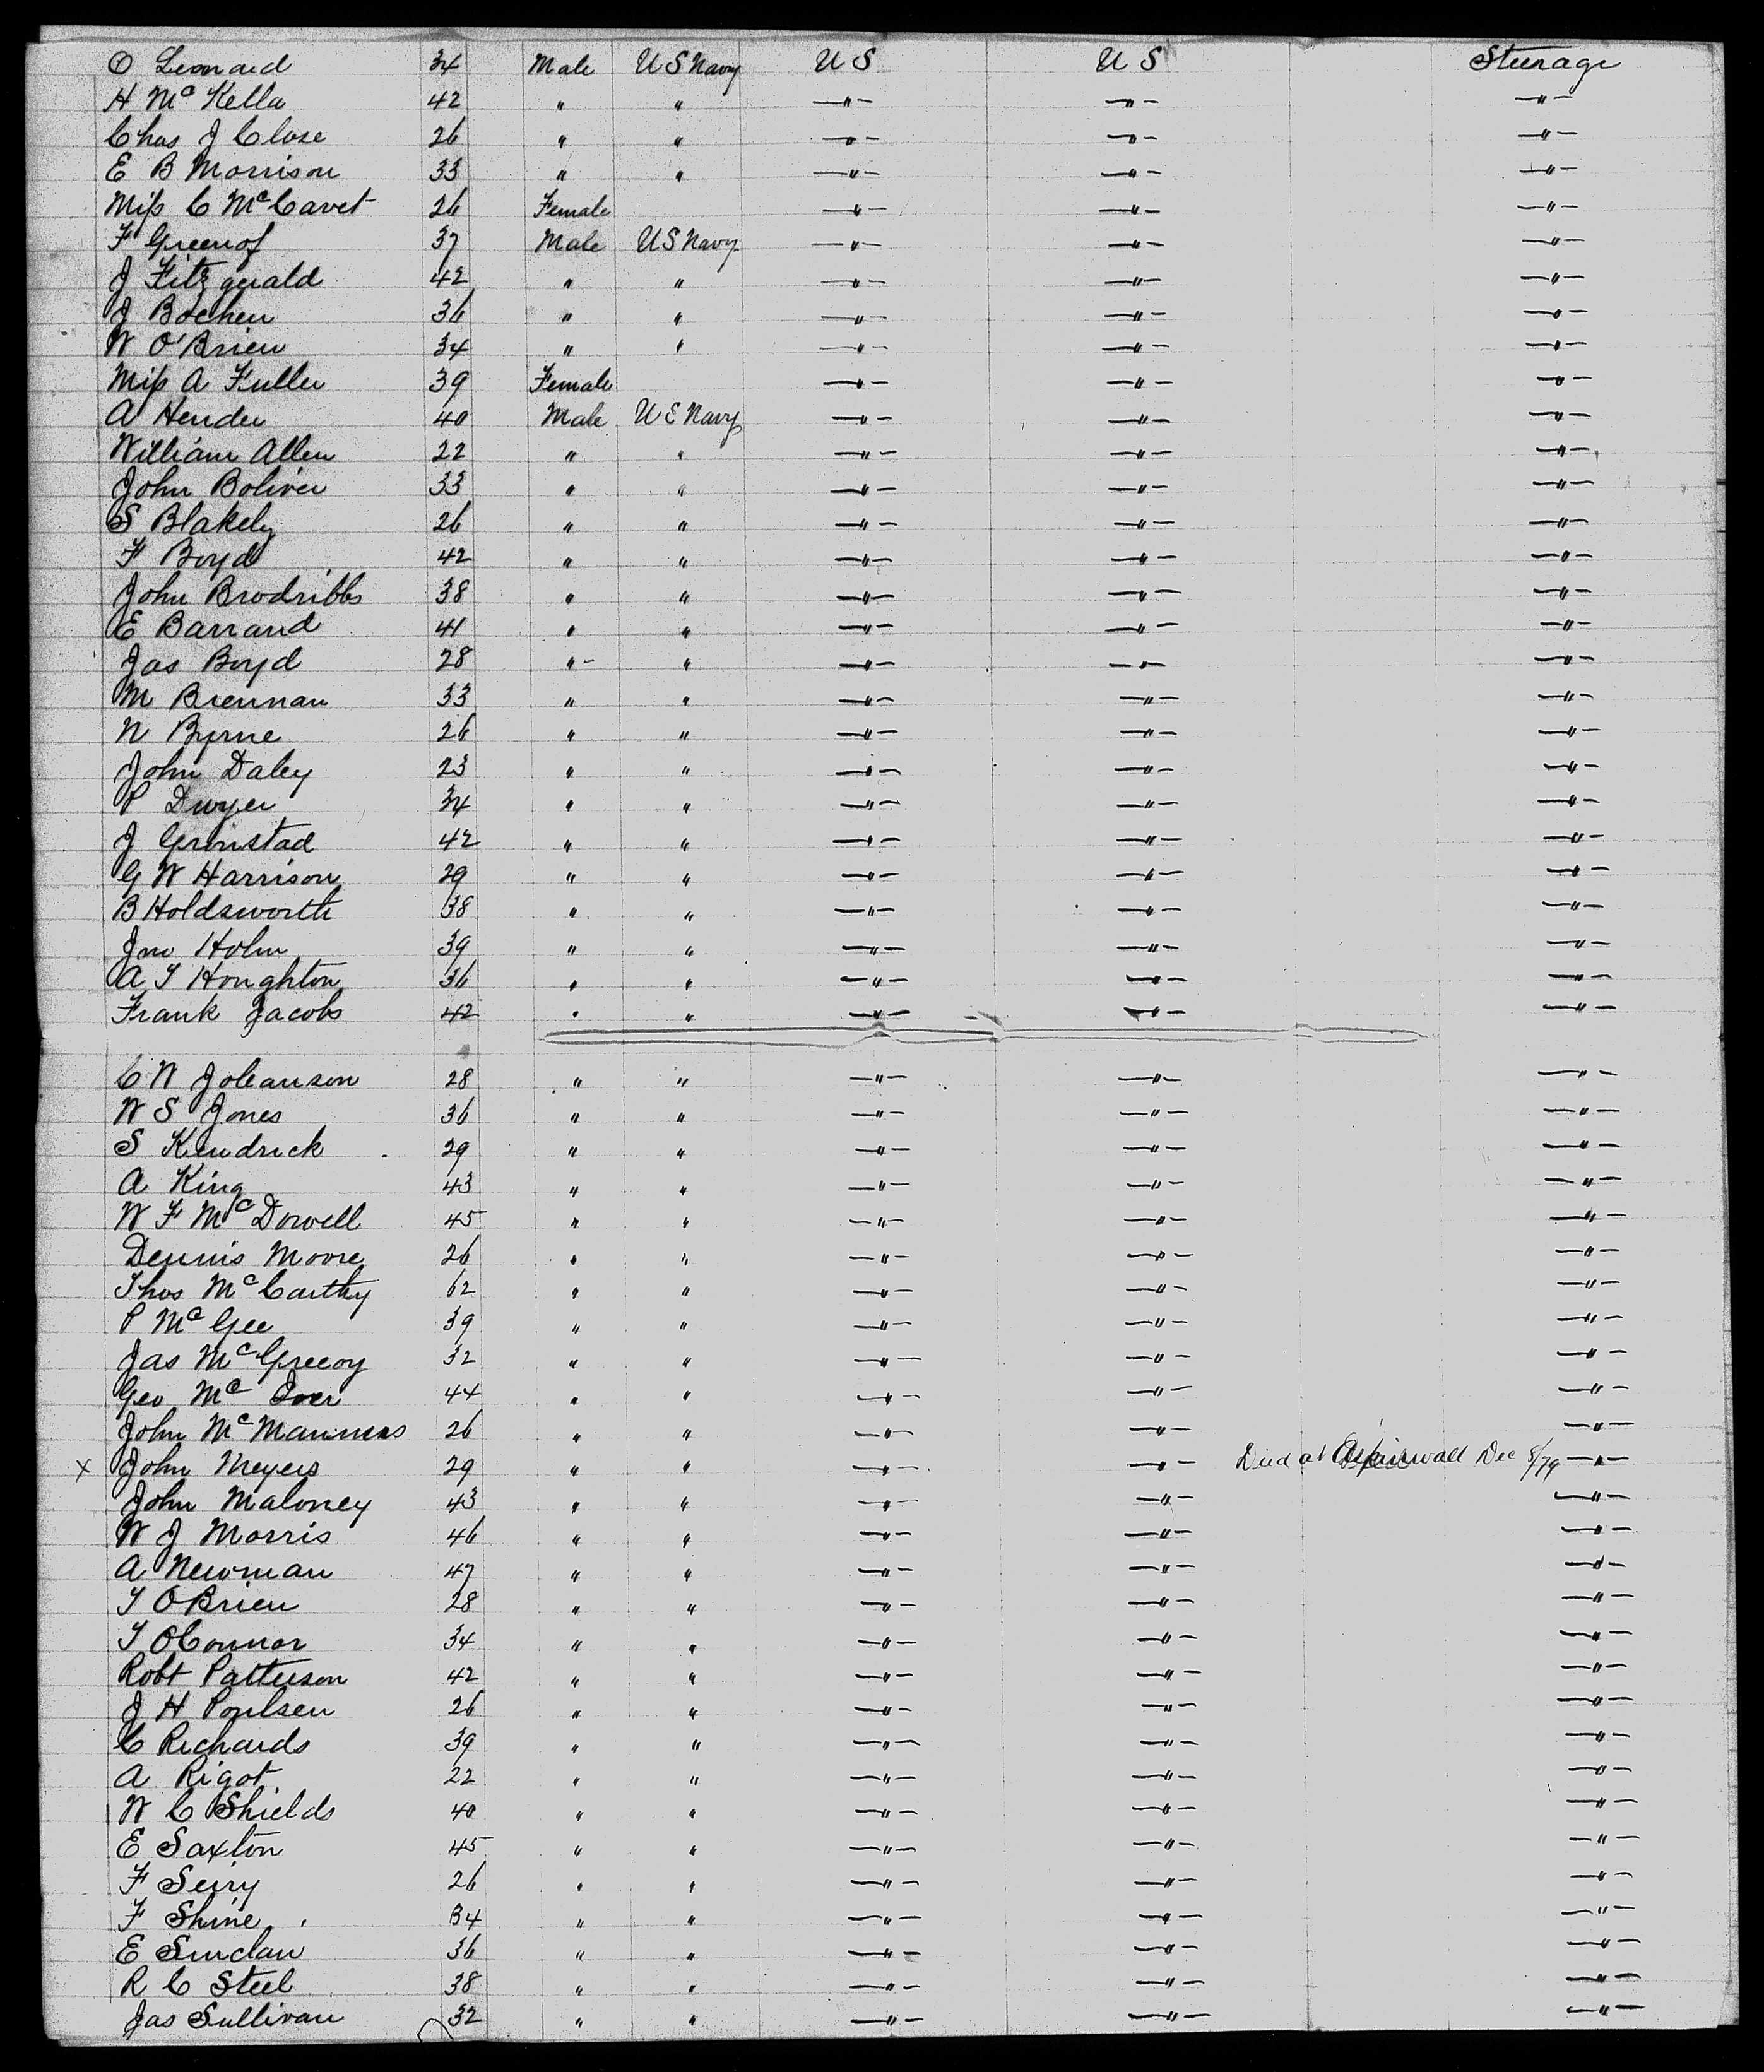 O Leonard 34 Male US Navy US US Steerage
H McKella 42 " " —"— —"— —"—
Chas J Close 26 " " —"— —"— —"—
E B Morrison 33 " " —"— —"— —"—
Miss C McCavet 26 Female —"— —"— —"—
F Greenof 37 Male US Navy —"— —"— —"—
J Fitzgerald 42 " " —"— —"— —"—
J Bochen 36 " " —"— —"— —"—
W O'Brien 34 " " —"— —"— —"—
Miss A Fuller 39 Female —"— —"— —"—
A Hender 40 Male US Navy —"— —"— —"—
William Allen 22 " " —"— —"— —"—
John Boliver 33 " " —"— —"— —"—
S Blakely 26 " " —"— —"— —"—
F Boyd 42 " " —"— —"— —"—
John Brodribbs 38 " " —"— —"— —"—
E Barrand 41 " " —"— —"— —"—
Jas Boyd 28 " " —"— —"— —"—
M Brennan 33 " " —"— —"— —"—
N Byrne 26 " " —"— —"— —"—
John Daley 23 " " —"— —"— —"—
P Dwyer 34 " " —"— —"— —"—
J Grinstad 42 " " —"— —"— —"—
G W Harrison 29 " " —"— —"— —"—
B Holdsworth 38 " " —"— —"— —"—
Jno Holm 39 " " —"— —"— —"—
A T Houghton 36 " " —"— —"— —"—
Frank Jacobs 42 " " —"— —"— —"—
C N Johanson 28 " " —"— —"— —"—
W S Jones 36 " " —"— —"— —"—
S Kendrick 29 " " —"— —"— —"—
A King 43 " " —"— —"— —"—
W F McDowell 45 " " —"— —"— —"—
Dennis Moore 26 " " —"— —"— —"—
Thos McCarthy 62 " " —"— —"— —"—
P McGee 39 " " —"— —"— —"—
Jas McGreeoy 32 " " —"— —"— —"—
Geo Mc 44 " " —"— —"— —"—
John McManners 26 " " —"— —"— —"—
x John Meyers 29 " " —"— —"— Died at Aspinwall Dec 8/79 —"—
John Maloney 43 " " —"— —"— —"—
W J Morris 46 " " —"— —"— —"—
A Newman 47 " " —"— —"— —"—
T OBrien 28 " " —"— —"— —"—
T OConnor 34 " " —"— —"— —"—
Robt Patterson 42 " " —"— —"— —"—
J H Poulsen 26 " " —"— —"— —"—
C Richards 39 " " —"— —"— —"—
A Rigot 22 " " —"— —"— —"—
W C Shields 40 " " —"— —"— —"—
E Saxton 45 " " —"— —"— —"—
F Seiry 26 " " —"— —"— —"—
F Shine 34 " " —"— —"— —"—
E Sinclair 36 " " —"— —"— —"—
R C Steel 38 " " —"— —"— —"—
Jas Sullivan 32 " " —"— —"— —"—